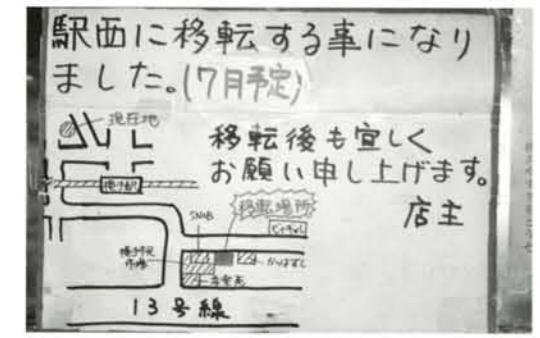 駅西に移転する事になり
ました。(7月予定)
現在地
移転後も宜しく
お願い申し上げます。
店主
横手駅
移転場所
かっぱずし
13号線